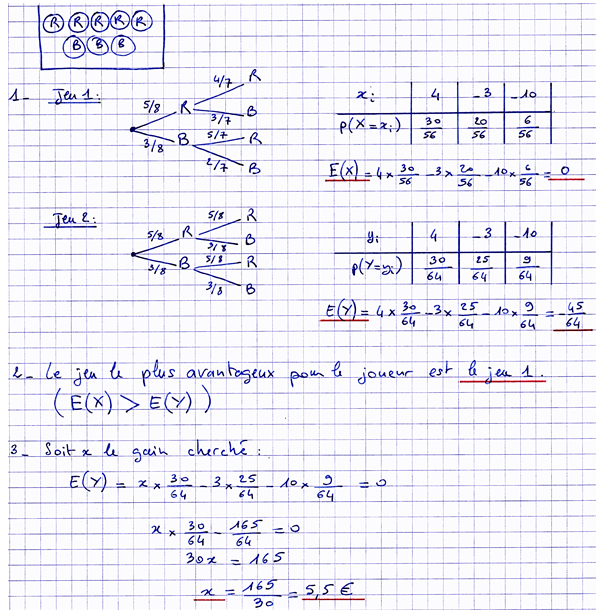 R R R R R
B B B
1- Jeu 1:
5/8 R 4/7 R
3/7 B
3/8 B 5/7 R
2/7 B
xi 4 -3 -10
p(X=xi) 30/56 20/56 6/56
E(X) = 4 × 30/56 - 3 × 20/56 - 10 × 6/56 = 0
Jeu 2:
5/8 R 5/8 R
3/8 B
3/8 B 5/8 R
3/8 B
yi 4 -3 -10
p(Y=yi) 30/64 25/64 9/64
E(Y) = 4 × 30/64 - 3 × 25/64 - 10 × 9/64 = -45/64
2- Le jeu le plus avantageux pour le joueur est le jeu 1.
( E(X) > E(Y) )
3- Soit x le gain cherché:
E(Y) = x × 30/64 - 3 × 25/64 - 10 × 9/64 = 0
x × 30/64 - 165/64 = 0
30x = 165
x = 165/30 = 5,5 €